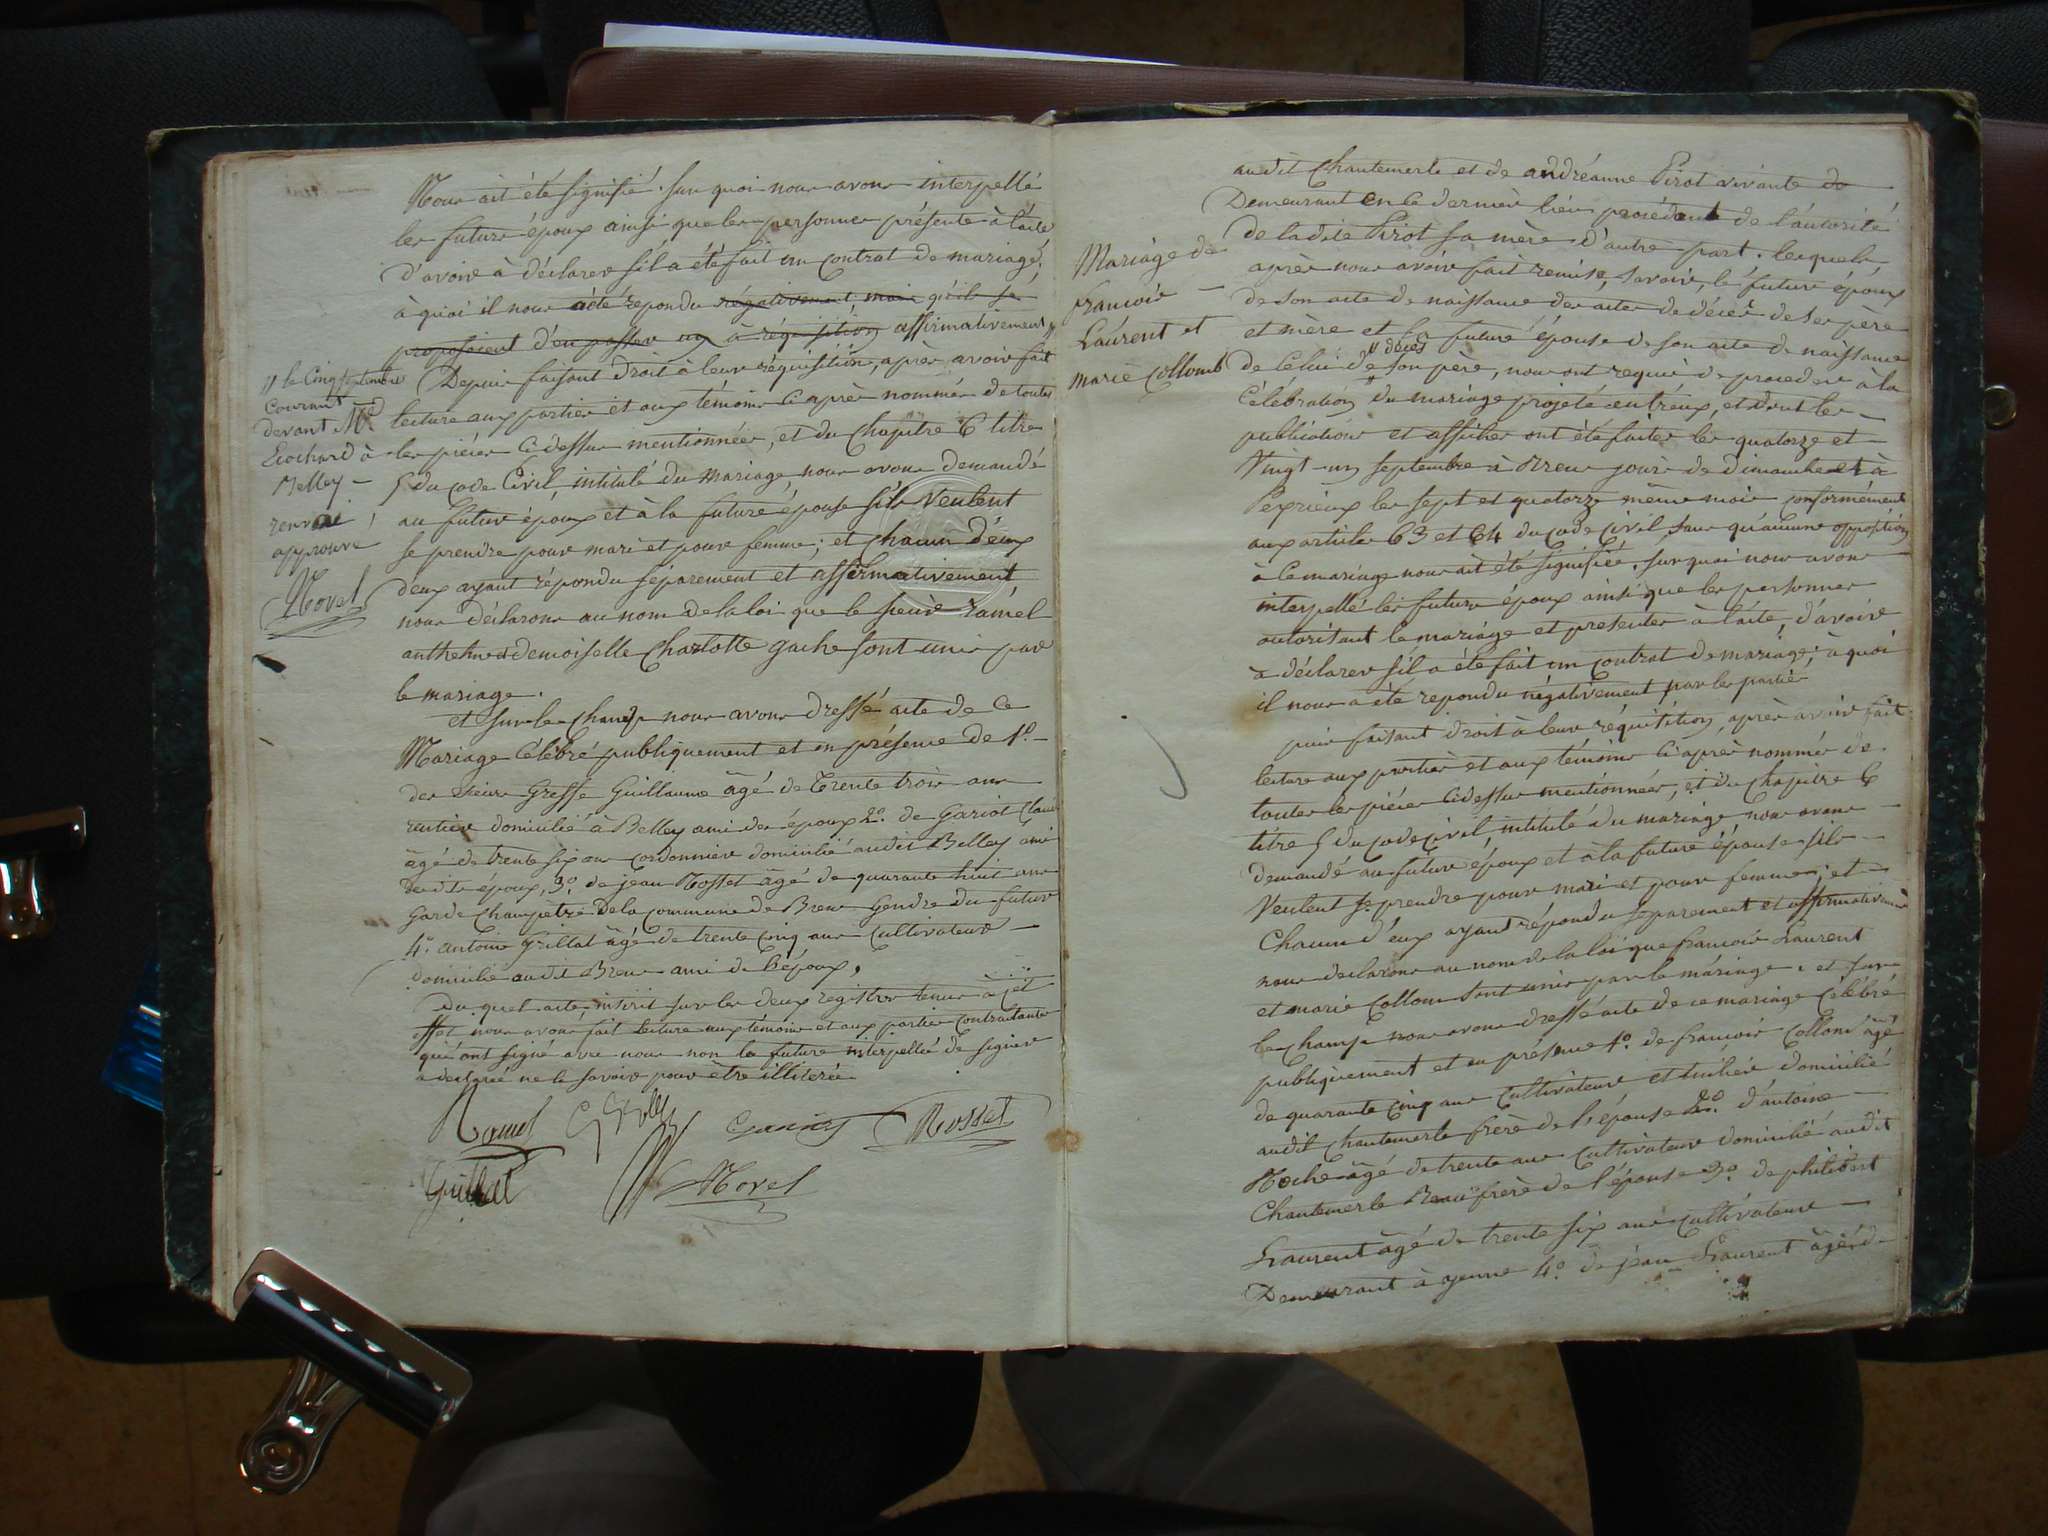 Nous ait été signifié. Sur quoi nous avons interpellé
les futurs époux ainsi que les personnes présente à l'acte
d'avoir à déclarer s'il a été fait un contrat de mariage,
à quoi il nous a été repondu négativement mais qu'ils se
proposoient d'en passer un à réquisition affirmativement //
Depuis faisant droit à leur réquisition, après avoir fait
lecture aux parties et aux témoins ci après nommés de toutes
les pièces ci dessus mentionnées, et du chapitre 6 titre
5 du code Civil, intitulé du Mariage, nous avons demandé
au futur époux et à la future épouse s'ils veulent
se prendre pour mari et pour femme; et chacun d'eux
deux ayant répondu séparement et affirmativement
nous déclarons au nom de la loi que le sieur ramel
anthelme et demoiselle Charlotte gache sont unis par
le mariage.
et sur le champ nous avons dressé acte de ce
Mariage célébré publiquement et en présence de 1º
des sieurs Greffe Guillaume âgé de trente trois ans
rentier domicilié à Belley ami des époux 2º de Gariot
âgé de trente six ans cordonnier domicilié audit Belley ami
desdits époux, 3º de jean Rosset âgé de quarante huit ans
Garde Champêtre de la commune de Brens Gendre du futur
4º antoine Grillat âgé de trente cinq ans Cultivateur
domicilié audit Brens ami de l'époux,
Du quel acte inscrit sur les deux registres tenus à cet
effet nous avons fait lecture aux témoins et aux parties contractantes
qui ont signé avec nous non la future interpellée de signer
a déclaré ne le savoir pour être illitérée
Ramel
Rosset
Grillat
Morel
// le Cinq septembre
Courant
devant Me
à
Belley
renvoi
approuvé
Morel
Mariage de
francois
Laurent et
marie Collomb
audit Chantemerle et de andréanne Pirot vivante
Demeurant en ce dernier lieu procédant de l'autorité
de ladite Pirot sa mère d'autre part. lesquels
après nous avoir fait remise, savoir, le future époux
de son acte de naissance des actes de décès de ses père
et mère et la future épouse de son acte de naissance
de celui de // décès son père, nous ont requis de proceder à la
Célébration du mariage projeté entr'eux, et dont les
publications et affiches ont été faites les quatorze et
Vingt un septembre à Brens jours de dimanche et à
Peyrieux les sept et quatorze même mois conformément
aux articles 63 et 64 du code Civil, sans qu'aucune opposition
à ce mariage nous ait été signifiée, sur quoi nous avons
interpellé les futurs époux ainsi que les personnes
autorisant le mariage et presentes à l'acte, d'avoir
à déclarer s'il a été fait un contrat de mariage; à quoi
il nous a été repondu négativement par les parties
puis faisant droit à leur réquisition après avoir fait
lecture aux parties et aux témoins ci après nommés de
toutes les pièces ci dessus mentionnées, et du chapitre 6
titre 5 du code Civil, intitulé du mariage nous avons
demandé au futur époux et à la future épouse s'ils
Veulent se prendre pour mari et pour femme; et
Chacun d'eux ayant répondu séparement et affirmativement
nous declarons au nom de la loi que francois Laurent
et marie Collomb sont unis par le mariage. et sur
le champ nous avons dressé acte de ce mariage célébré
publiquement et en présence 1º de francois Collomb âgé
de quarante cinq ans Cultivateur domicilié
audit Chantemerle frère de l'épouse 2º d'antoine
Roche âgé de trente ans Cultivateur domicilié audit
Chantemerle Beau frère de l'épouse 3º de philibert
Laurent âgé de trente six ans Cultivateur
Demeurant à 4º de jean Laurent âgé de